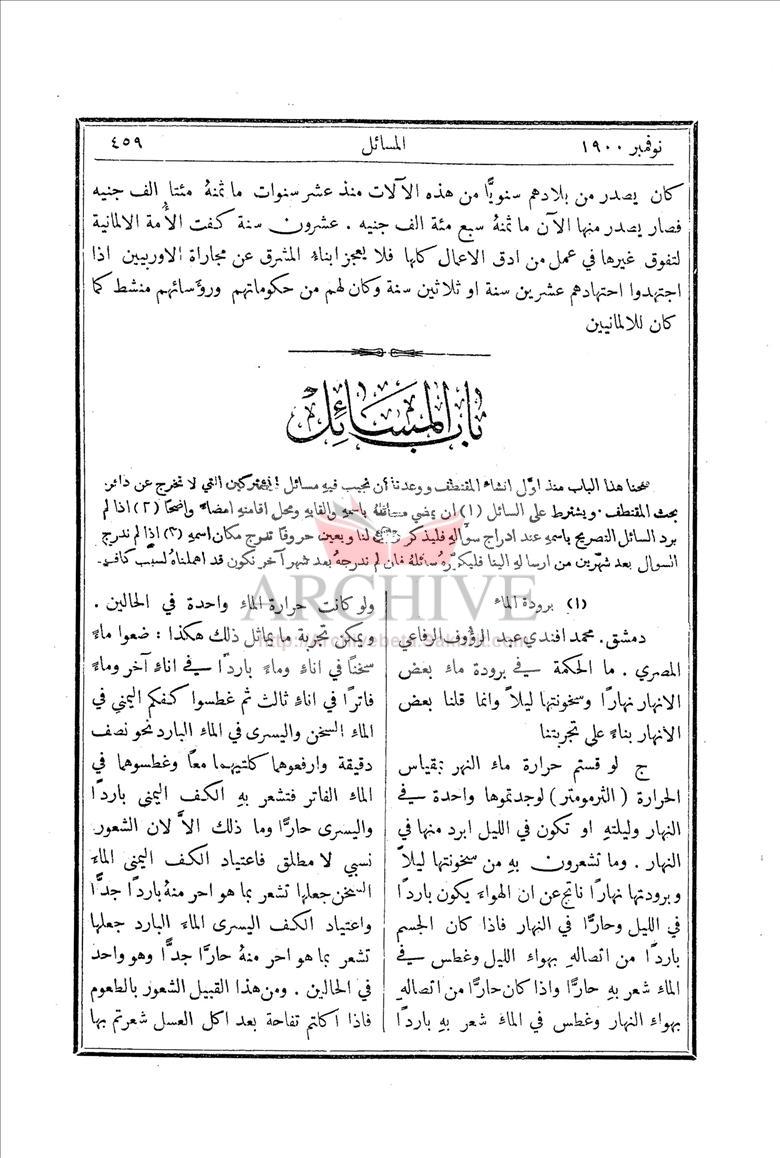 نوفمبر ١٩٠٠
المسائل
٤٥٩
كان يصدر من بلادهم سنويًّا من هذه الآلات منذ عشر سنوات ما ثمنهُ مئتا الف جنيه
فصار يصدر منها الآن ما ثمنهُ سبع مئة الف جنيه . عشرون سنة كفت الأمة الالمانية
لتفوق غيرها في عمل من ادق الاعمال كلها فلا يعجز ابناء المشرق عن مجاراة الاوربيين اذا
اجتهدوا اجتهادهم عشرين سنة او ثلاثين سنة وكان لهم من حكوماتهم ورؤسائهم منشط كما
كان للالمانيين
باب المسائل
فتحنا هذا الباب منذ اوّل انشاء المقتطف ووعدنا أن نجيب فيهِ مسائل المشتركين التي لا تخرج عن دائرة
بحث المقتطف . ويشترط على السائل (١) ان يمضي مسائلهُ باسمهِ والقابهِ ومحل اقامتهِ امضاءً واضحًا (٢) اذا لم
يرد السائل التصريح باسمهِ عند ادراج سؤالهِ فليذكر ذلك لنا ويعين حروفًا تدرج مكان اسمهِ (٣) اذا لم ندرج
السؤال بعد شهرين من ارسالهِ الينا فليكررهُ سائلهُ فان لم ندرجهُ بعد شهر آخر نكون قد اهملناهُ لسبب كافٍ
ARCHIVE
(١) برودة الماء
دمشق . محمد افندي عبد الرؤوف الرفاعي
المصري . ما الحكمة في برودة ماء بعض
الانهار نهارًا وسخونتها ليلاً وانما قلنا بعض
الانهار بناءً على تجربتنا
ج لو قستم حرارة ماء النهر بمقياس
الحرارة (الثرمومتر) لوجدتموها واحدة في
النهار وليلتهِ او تكون في الليل ابرد منها في
النهار . وما تشعرون بهِ من سخونتها ليلاً
وبرودتها نهارًا ناتج عن ان الهواء يكون باردًا
في الليل وحارًّا في النهار فاذا كان الجسم
باردًا من اتصالهِ بهواء الليل وغطس في
الماء شعر بهِ حارًّا واذا كان حارًّا من اتصالهِ
بهواء النهار وغطس في الماء شعر بهِ باردًا
ولو كانت حرارة الماء واحدة في الحالين .
ويمكن تجربة ما يماثل ذلك هكذا : ضعوا ماءً
سخنًا في اناء وماءً باردًا في اناء آخر وماءً
فاترًا في اناء ثالث ثم غطسوا كفكم اليمنى في
الماء السخن واليسرى في الماء البارد نحو نصف
دقيقة وارفعوهما كلتيهما معًا وغطسوهما في
الماء الفاتر فتشعر بهِ الكف اليمنى باردًا
واليسرى حارًّا وما ذلك الاَّ لان الشعور
نسبي لا مطلق فاعتياد الكف اليمنى الماء
السخن جعلها تشعر بما هو احر منهُ باردًا جدًّا
واعتياد الكف اليسرى الماء البارد جعلها
تشعر بما هو احر منهُ حارًّا جدًّا وهو واحد
في الحالين . ومن هذا القبيل الشعور بالطعوم
فاذا اكلتم تفاحة بعد اكل العسل شعرتم بها